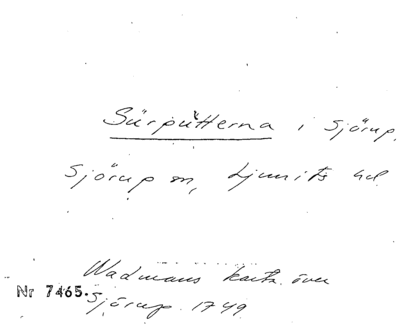 Sürpütterna i Sjörup.
Sjörup sn, Ljunits hd
Wadmans karta över
Nr 7465. Sjörup. 1749